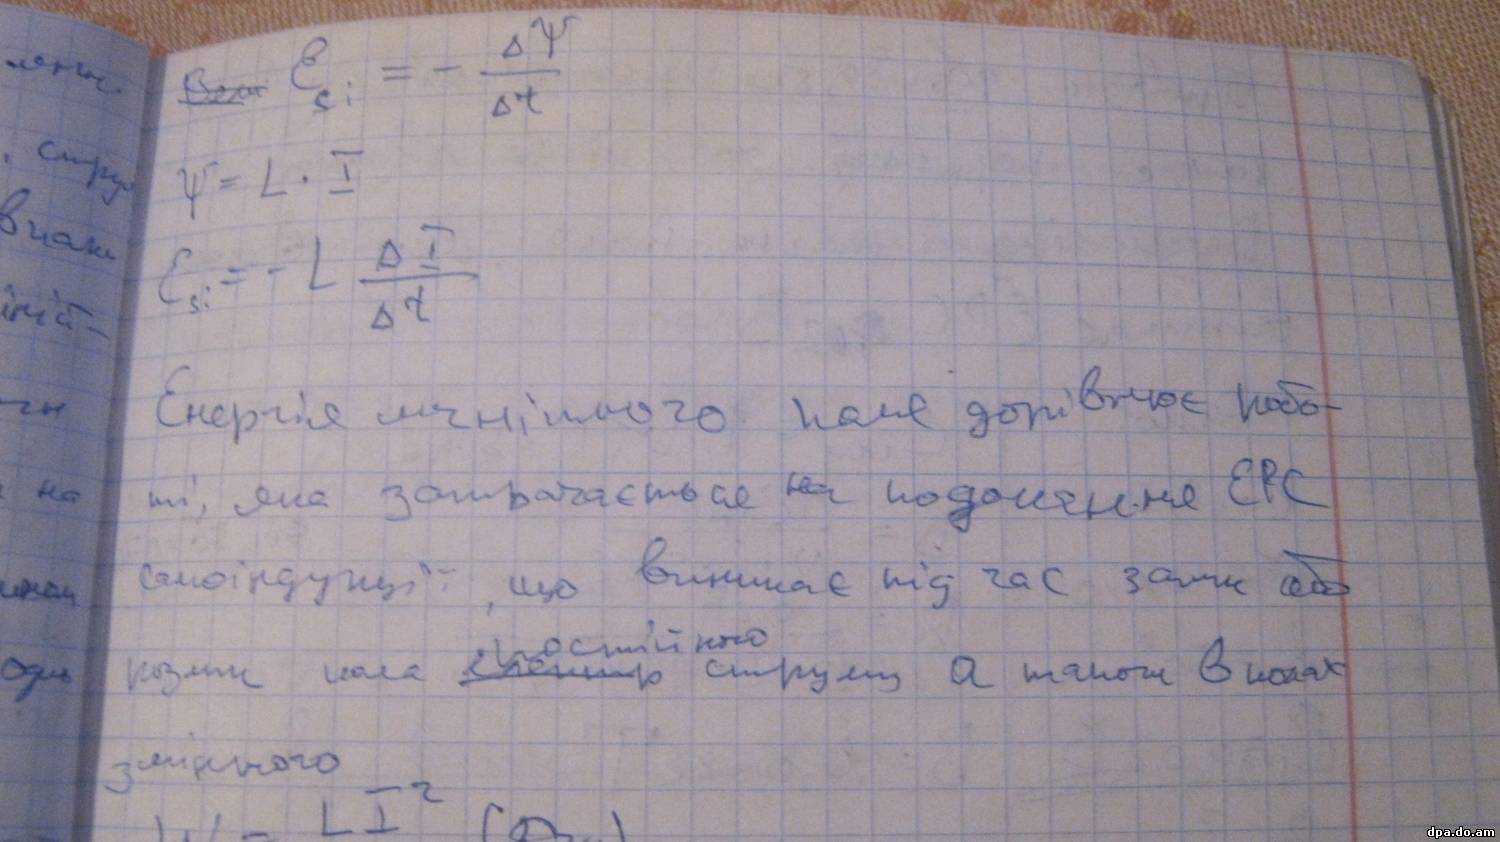 Ɛsi = - ΔΨ/Δt
Ψ = L · I
Ɛsi = - L ΔI/Δt
Енергія магнітного поля дорівнює робо-
ті, яка затрачається на подолання ЕРС
самоіндукції, що виникає під час замик або
розмик кола постійного струму а також в колах
змінного
W = LI² (Дж)
струм
на
dpa.do.am